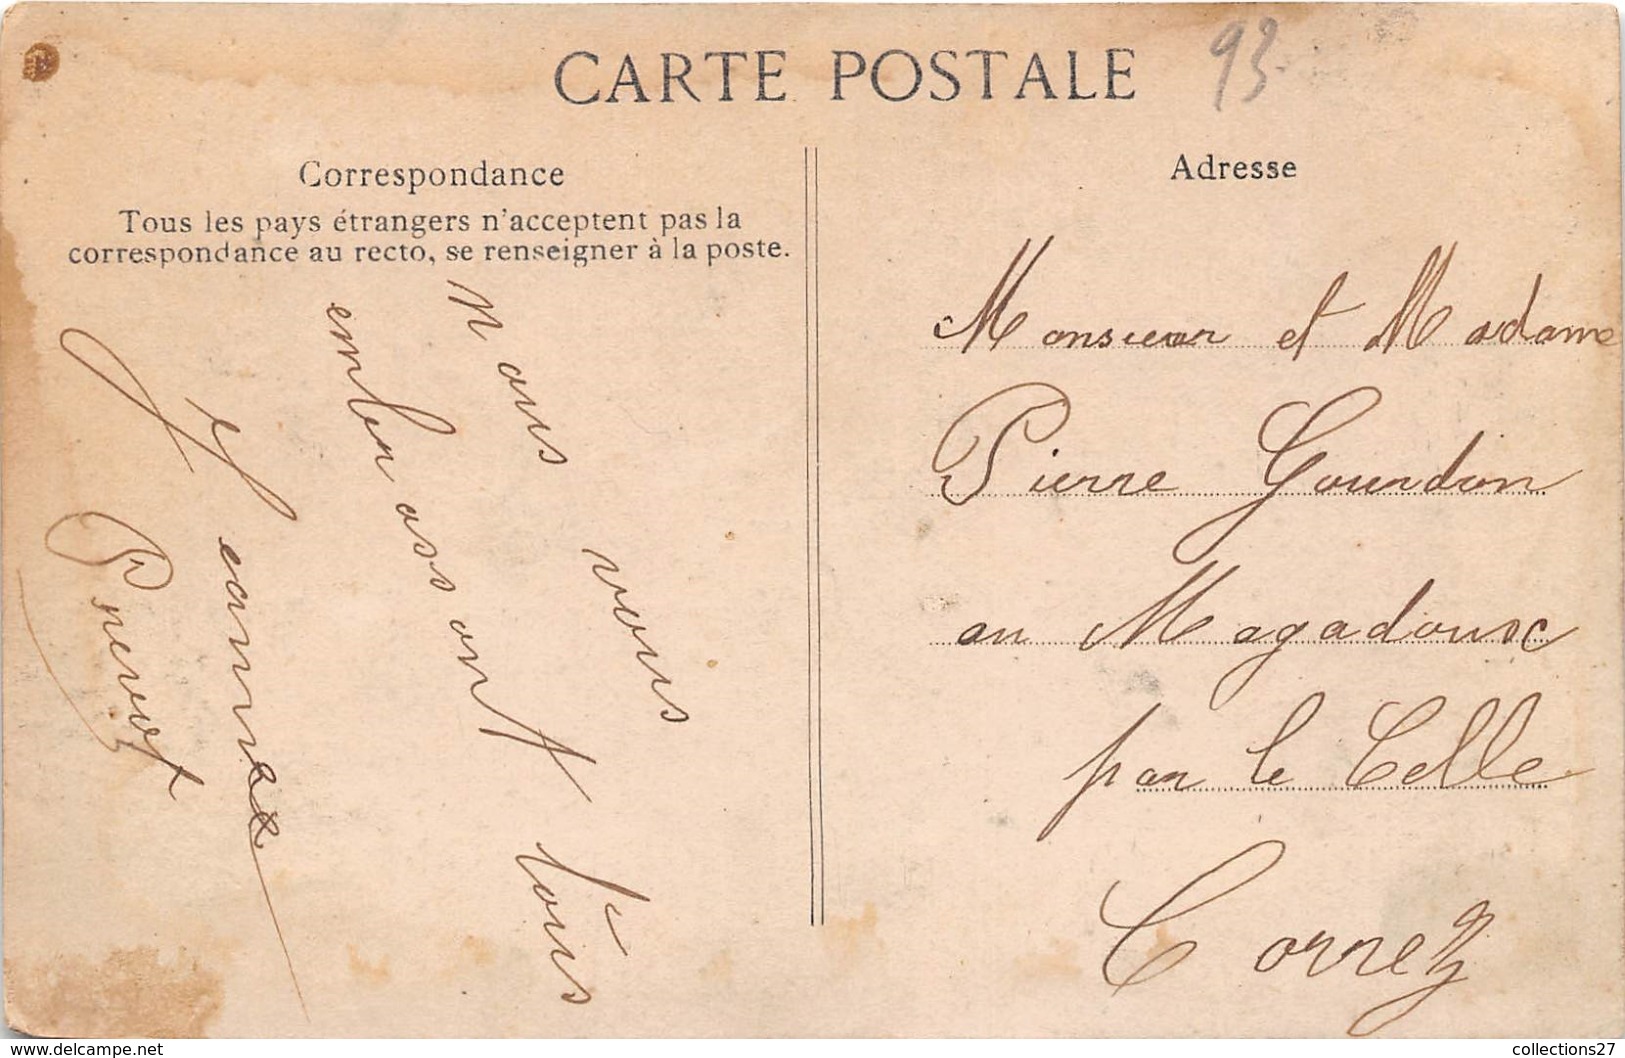 CARTE POSTALE
93
Correspondance
Tous les pays étrangers n'acceptent pas la
correspondance au recto, se renseigner à la poste.
Nous vous
embrassont tous
Jeanne
Prevot
Adresse
Monsieur et Madame
Pierre Gourdon
au Magadoux
par le Celle
Correz
www.delcampe.net
collections27